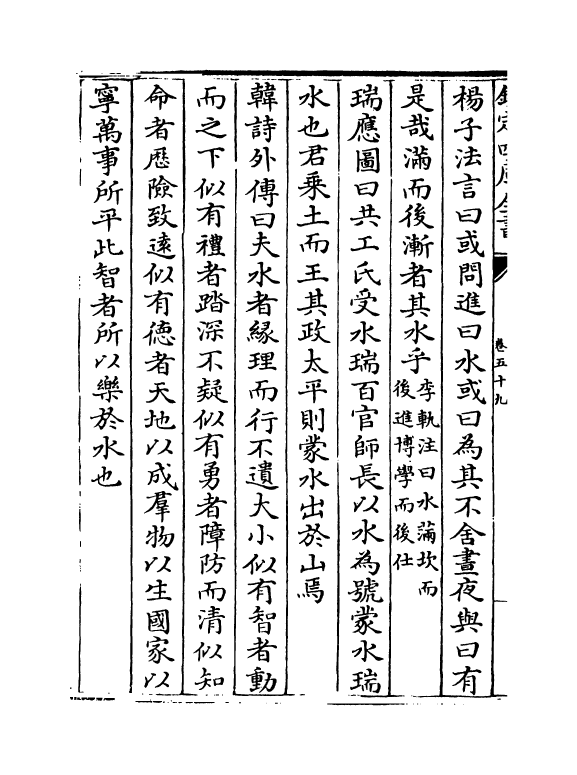 欽定四庫全書
卷五十九
楊子法言曰或問進曰水或曰為其不舍晝夜與曰有
是哉滿而後漸者其水乎李軌注曰水滿坎而後進博學而後仕
瑞應圖曰共工氏受水瑞百官師長以水為號蒙水瑞
水也君乗土而王其政太平則蒙水出於山焉
韓詩外傳曰夫水者緣理而行不遺大小似有智者動
而之下似有禮者蹈深不疑似有勇者障防而清似知
命者歴險致逺似有德者天地以成羣物以生國家以
寧萬事所平此智者所以樂於水也